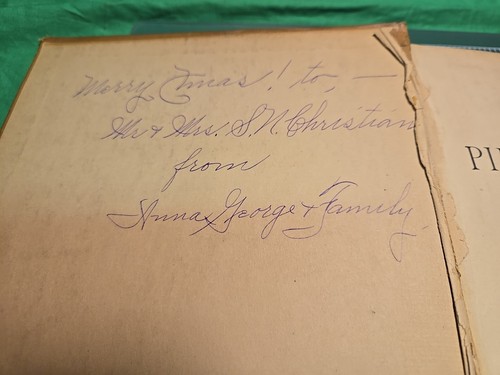 Merry Xmas! to, —
Mr & Mrs. S.N. Christian
from
Anna George & Family
PI